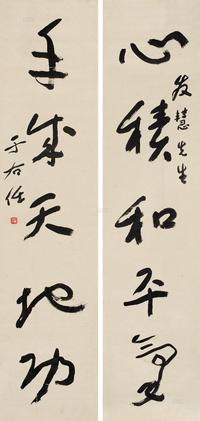 友慧先生
心積和平氣
手成天地功
于右任